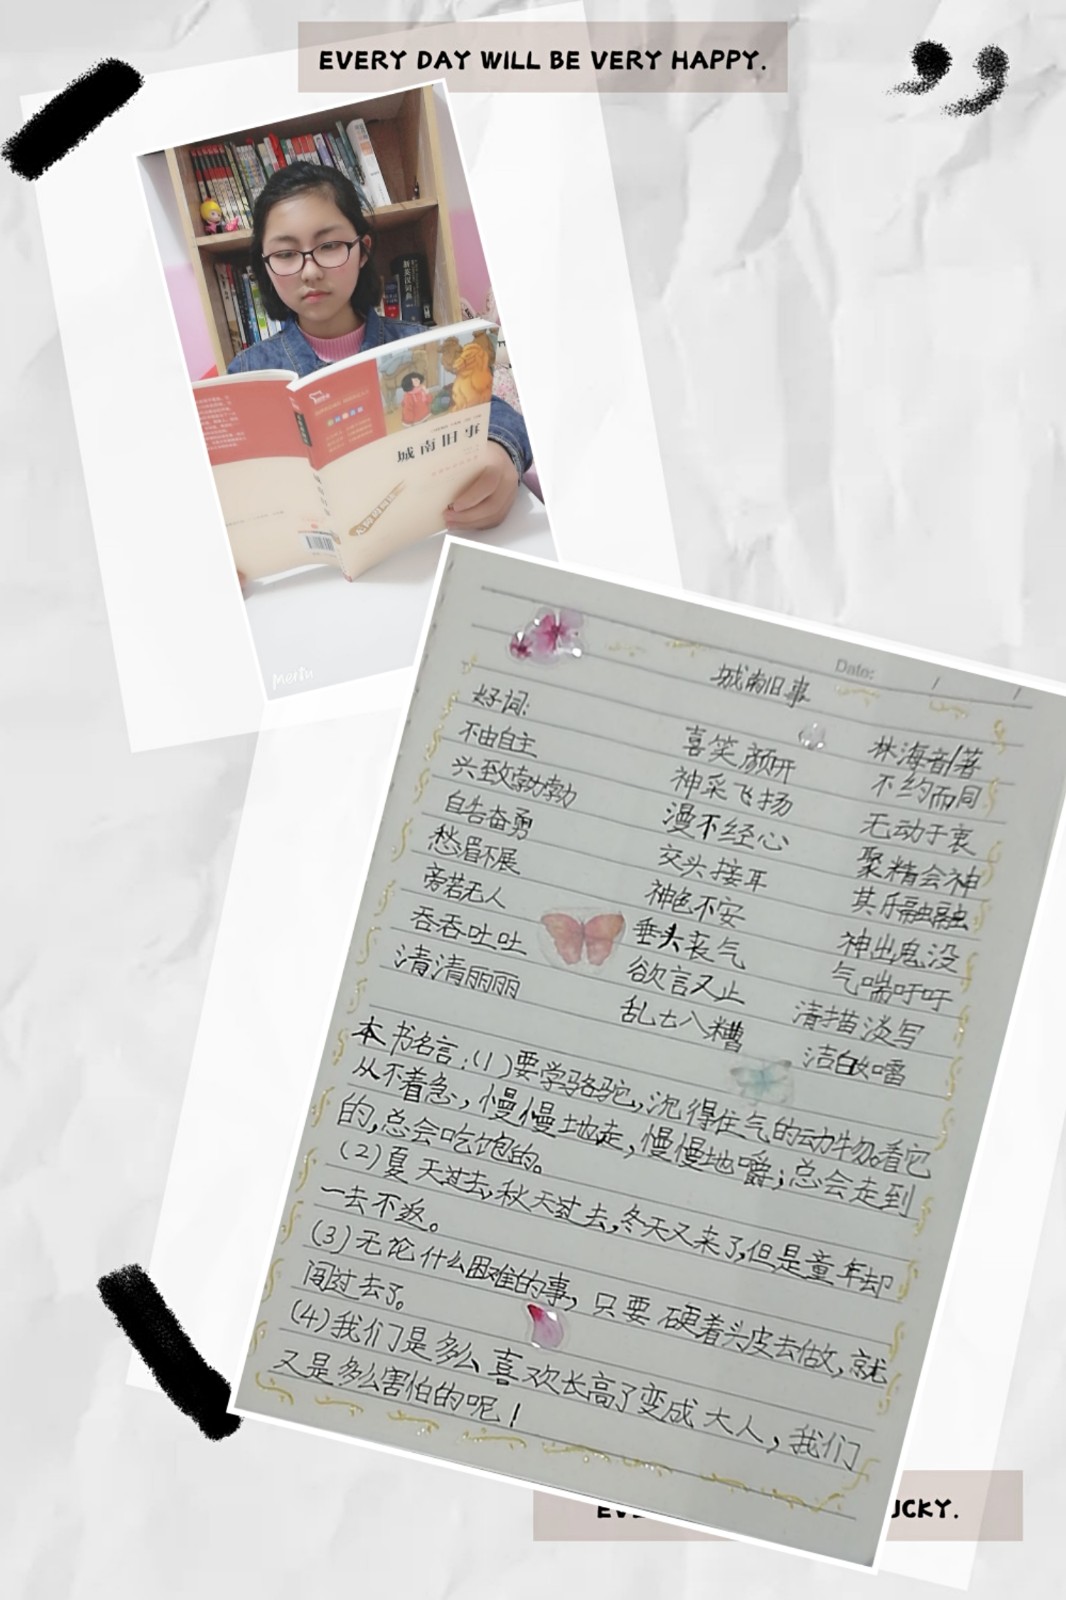 EVERY DAY WILL BE VERY HAPPY.
新英汉词典
城南旧事
Meitu
Date: / /
城南旧事
好词:
林海音/著
不由自主 喜笑颜开 不约而同
兴致勃勃 神采飞扬 无动于衷
自告奋勇 漫不经心 聚精会神
愁眉不展 交头接耳 其乐融融
旁若无人 神色不安 神出鬼没
吞吞吐吐 垂头丧气 气喘吁吁
清清丽丽 欲言又止 清描淡写
乱七八糟 洁白
本书名言:(1)要学骆驼,沉得住气的动物。看它
从不着急,慢慢地走,慢慢地嚼;总会走到
的,总会吃饱的。
(2)夏天过去,秋天过去,冬天又来了,但是童年却
一去不返。
(3)无论什么困难的事,只要硬着头皮去做,就
闯过去了。
(4)我们是多么喜欢长高了变成大人,我们
又是多么害怕的呢!
UCKY.